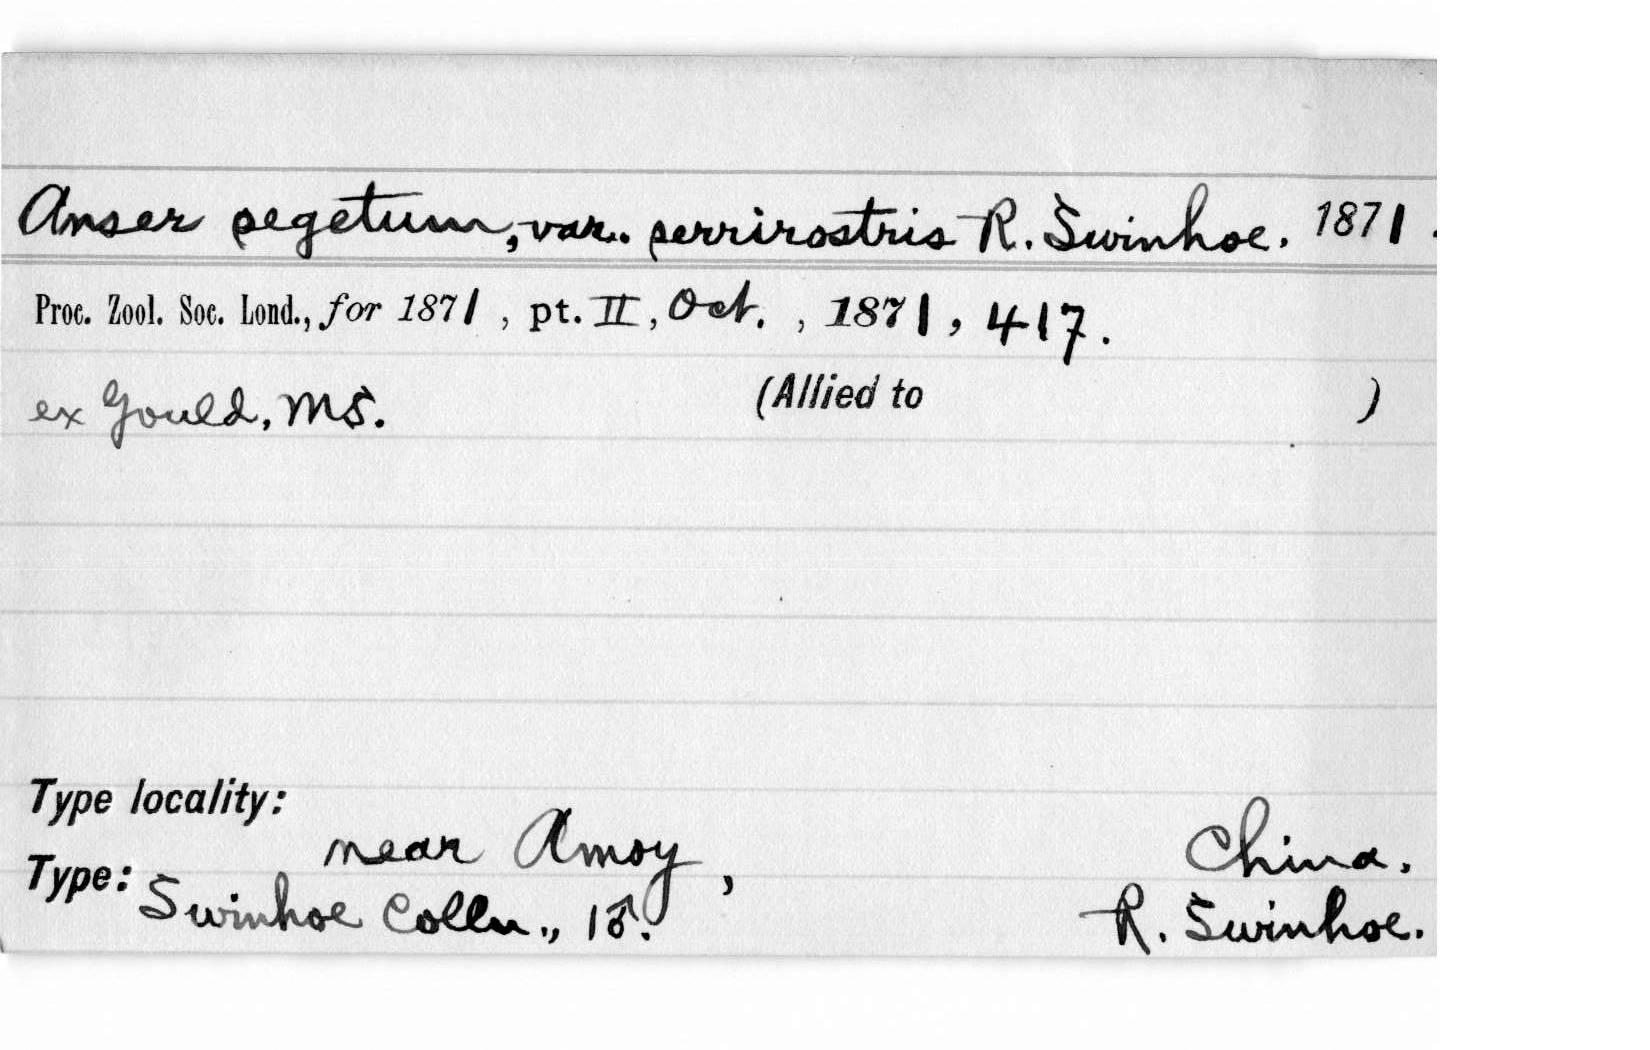 Anser segetum, var. serrirostris R. Swinhoe. 1871.
Proc. Zool. Soc. Lond., for 1871, pt. II, Oct., 1871, 417.
ex Gould, MS. (Allied to )
Type locality:
near Amoy, China.
Type: Swinhoe Colln., 1♂. R. Swinhoe.